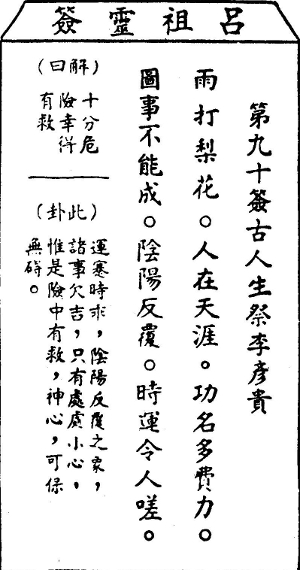 呂祖靈簽
第九十簽古人生祭李彥貴
雨打梨花。人在天涯。功名多費力。
圖事不能成。陰陽反覆。時運令人嗟。
(解曰)
十分危
險幸得
有救
(此卦)
運蹇時乖，陰陽反覆之象，
諸事欠吉，只有處處小心，
惟是險中有救，神心，可保
無碍。